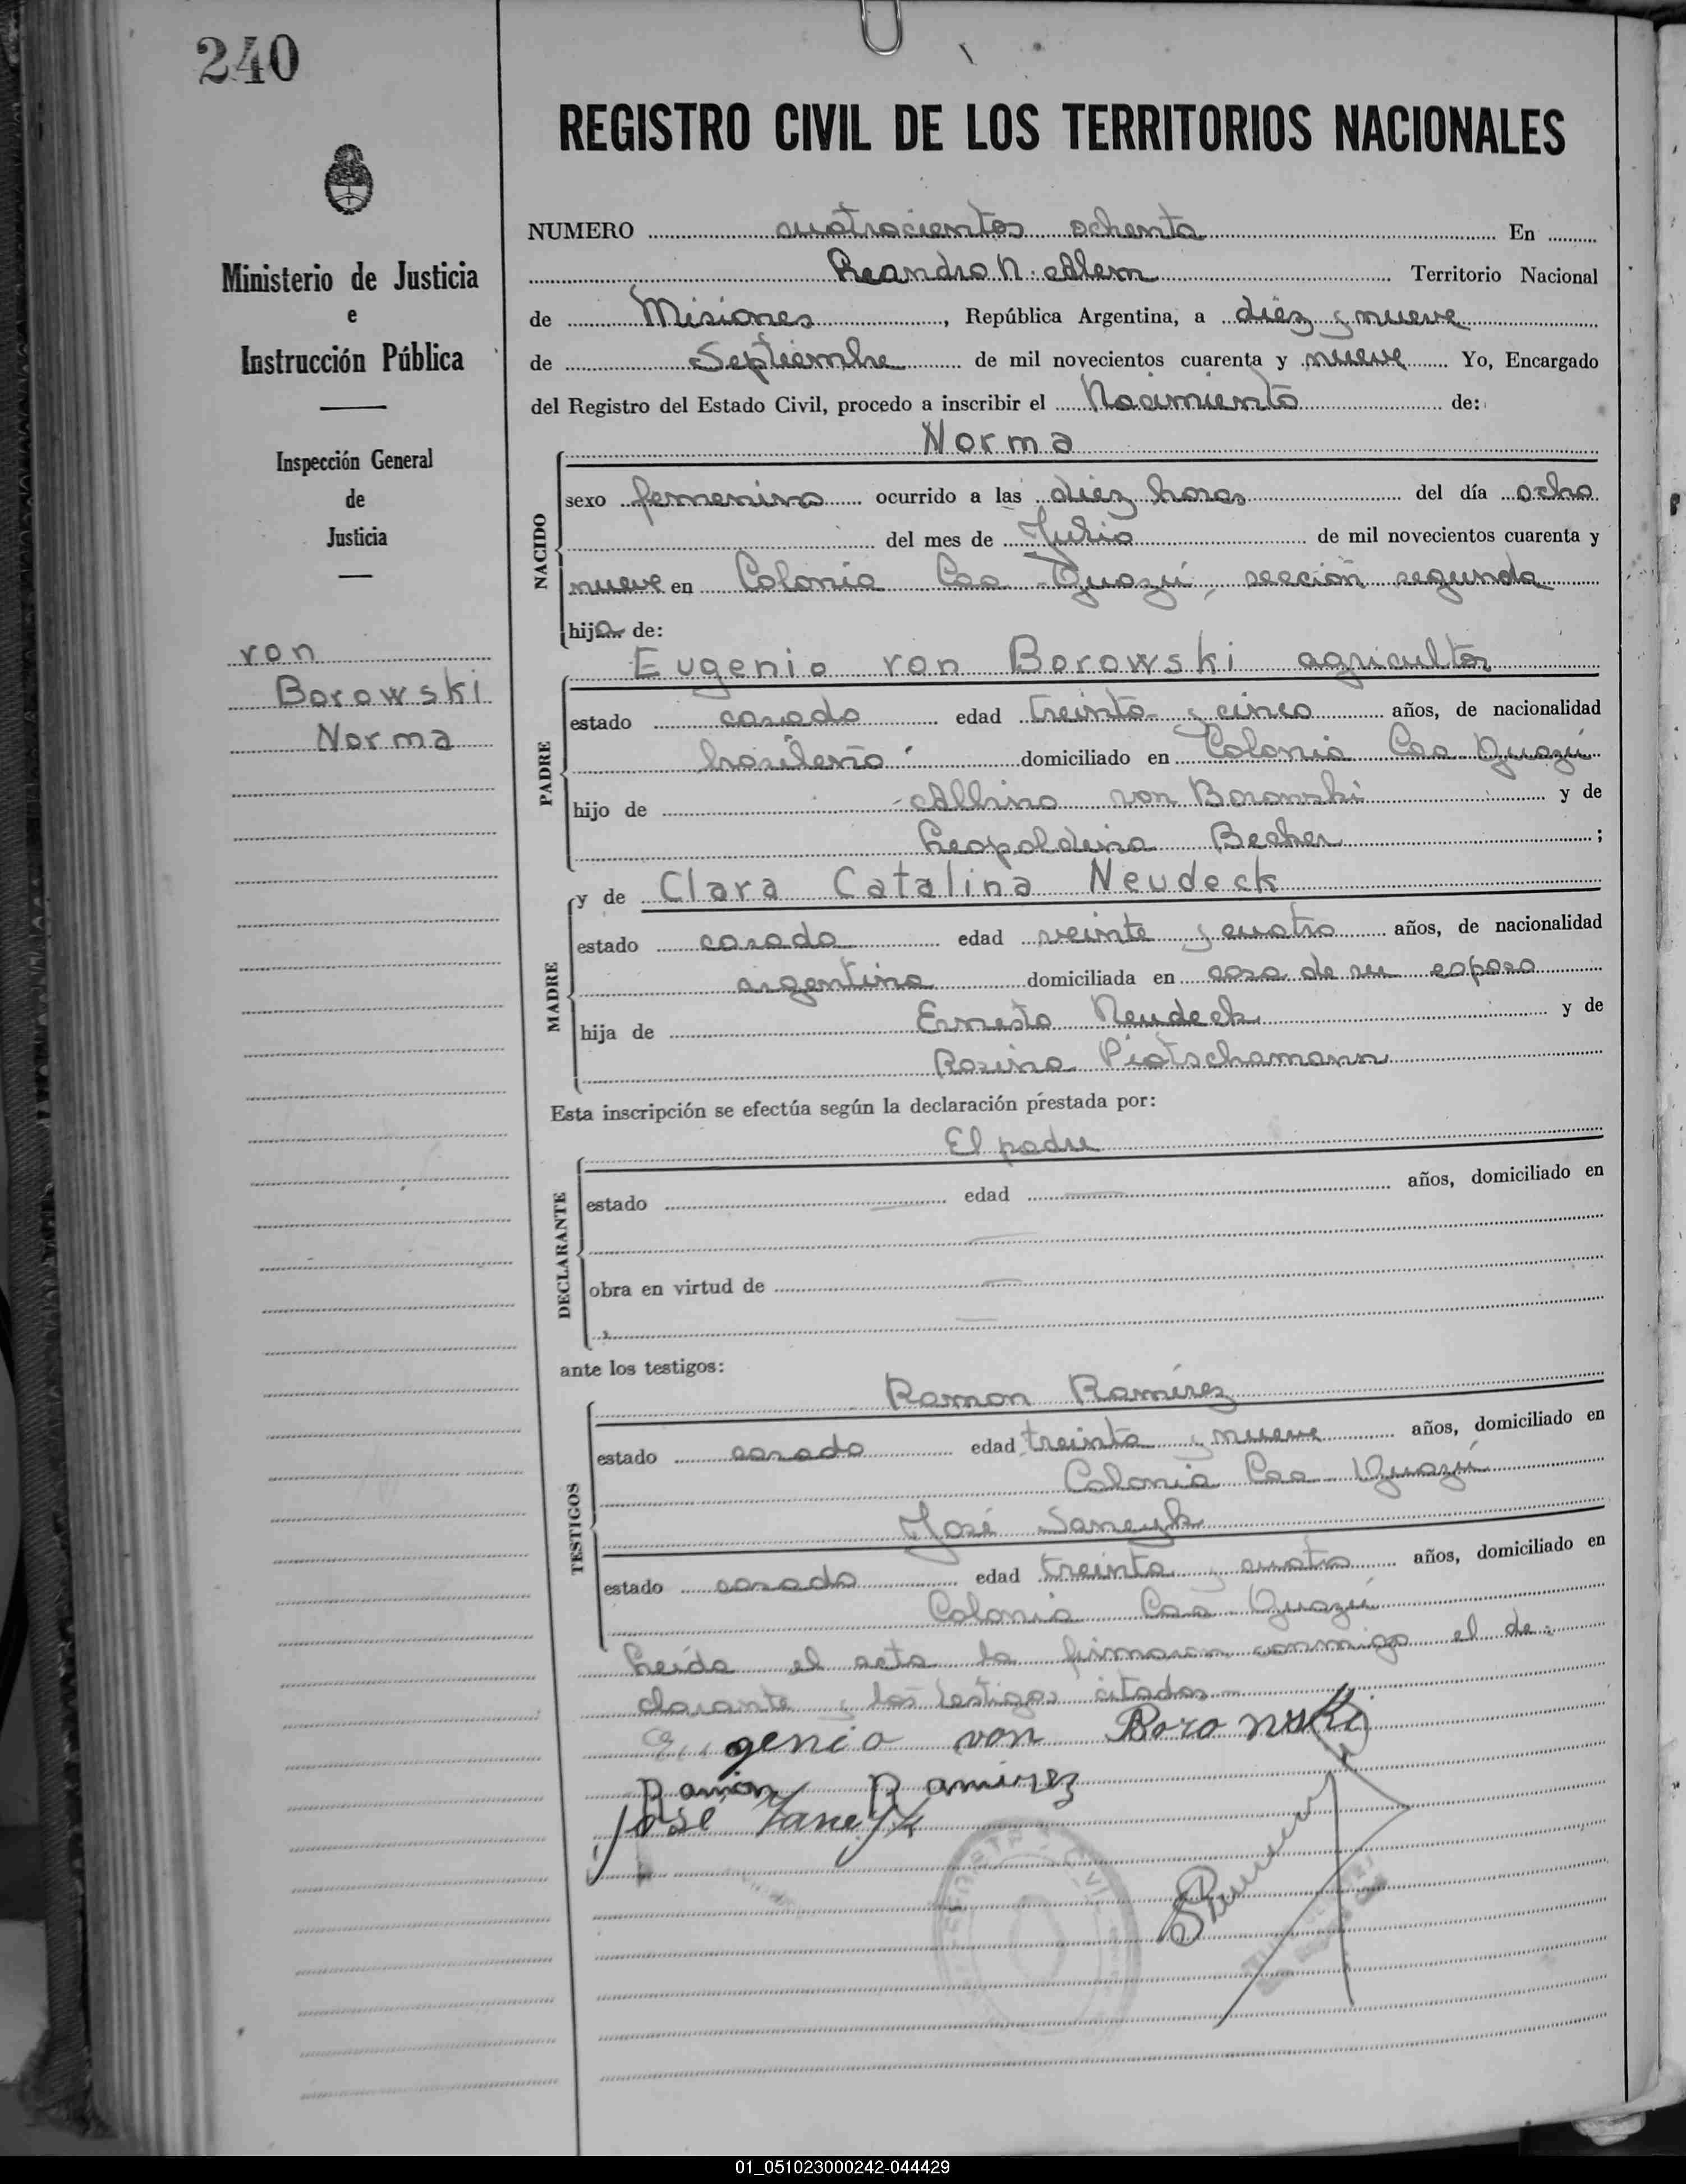 240
REGISTRO CIVIL DE LOS TERRITORIOS NACIONALES
Ministerio de Justicia
e
Instrucción Pública
Inspección General
de
Justicia
von
Borowski
Norma
NUMERO cuatrocientos ochenta En
Leandro N. Alem Territorio Nacional
de Misiones, República Argentina, a diez y nueve
de Septiembre de mil novecientos cuarenta y nueve Yo, Encargado
del Registro del Estado Civil, procedo a inscribir el Nacimiento de:
Norma
NACIDO
sexo femenino ocurrido a las diez horas del día ocho
del mes de Julio de mil novecientos cuarenta y
nueve en Colonia Caa-Guazú, sección segunda
hija de:
Eugenio von Borowski agricultor
PADRE
estado casado edad treinta y cinco años, de nacionalidad
brasileño domiciliado en Colonia Caa Guazú
hijo de Albino von Borowski y de
Leopoldina Becker ;
y de Clara Catalina Neudeck
MADRE
estado casada edad veinte y cuatro años, de nacionalidad
argentina domiciliada en casa de su esposo
hija de Ernesto Neudeck y de
Rosina Piotschamann
Esta inscripción se efectúa según la declaración prestada por:
El padre
DECLARANTE
estado edad años, domiciliado en
obra en virtud de
ante los testigos:
Ramon Ramírez
TESTIGOS
estado casado edad treinta y nueve años, domiciliado en
Colonia Caa Guazú
José Saneyk
estado casado edad treinta y cuatro años, domiciliado en
Colonia Caa Guazú
Leída el acta la firmaron conmigo el de-
clarante y los testigos citados
Eugenio von Borowski
Ramón Ramirez
José
01_051023000242-044429